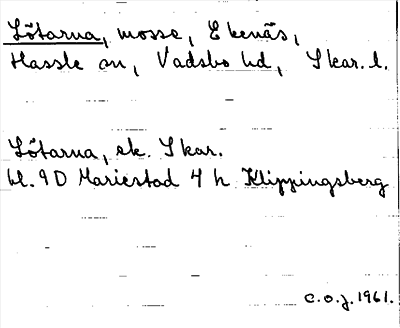 Lötarna, mosse, Ekenäs,
Hassle sn, Vadsbo hd, Skar. l.
Lötarna, ek. Skar.
bl. 9D Mariestad 4 h Klippingsberg
C.O.J. 1961.